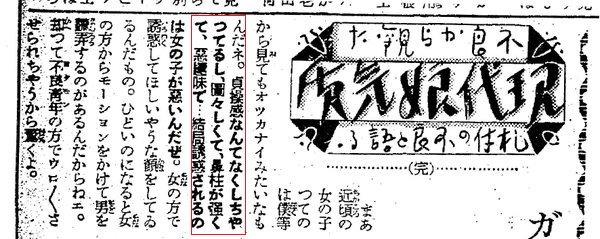 不良から観た
現代娘気質
札付の不良と語る
(完)
ガ
まあ
近頃の
女の子
つての
は僕等
から見てもオツカナイみたいなも
んだネ。貞操感なんてなくしちや
つてるし、圖々しくて、鼻柱が強く
て、惡趣味で…結局誘惑されるの
は女の子が惡いんだぜ。女の方で
誘惑してほしいやうな顔をしてゐ
るんだもの。ひどいのになると女
の方からモーションをかけて男を
飜弄するのがあるんだからねェ。
却つて不良靑年の方でウロ〱さ
せられちやうから驚くよ。